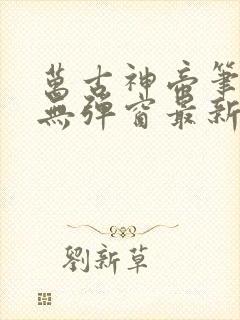 萬古神帝筆
無彈窗最新
劉新草